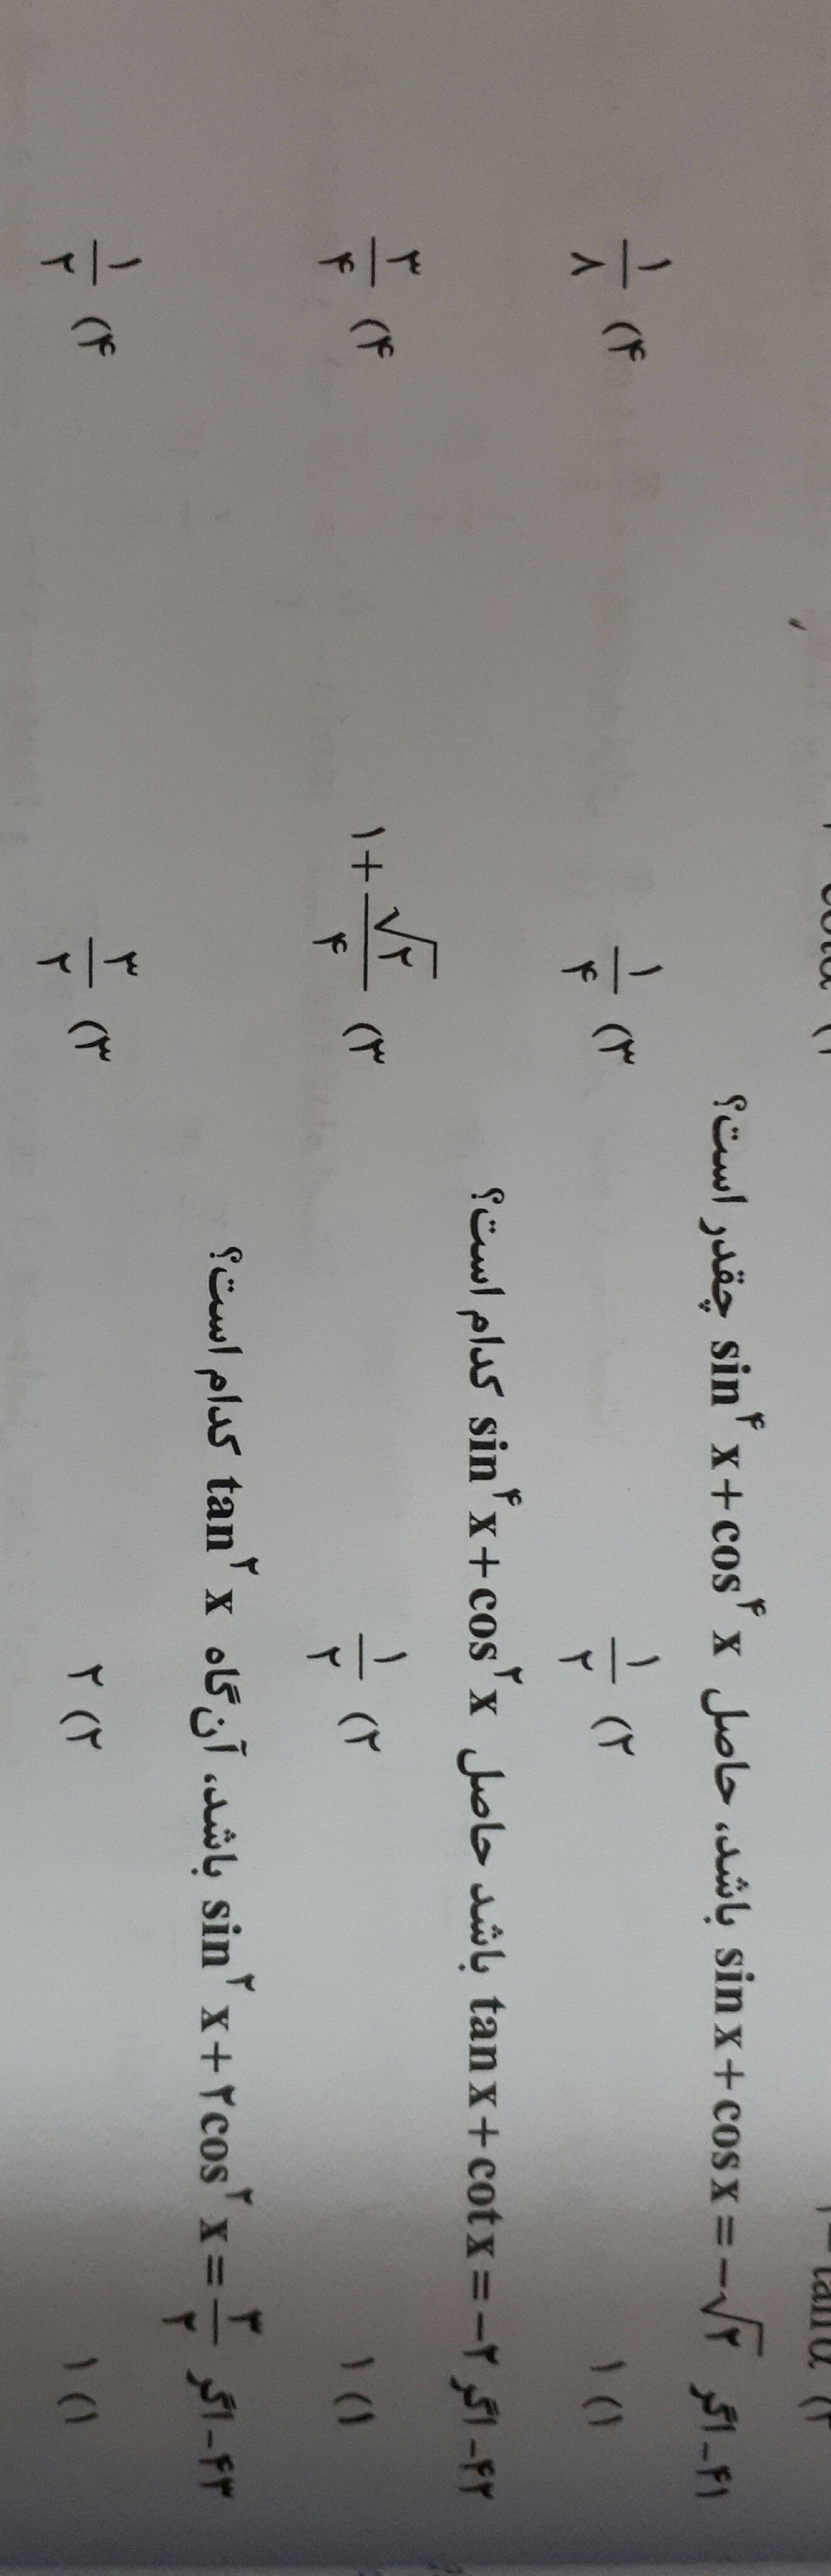 ۴۱- اگر sin x + cos x = -√۲ باشد، حاصل sin^۴ x + cos^۴ x چقدر است؟
۱) ۱ ۲) ۱/۲ ۳) ۱/۴ ۴) ۱/۸
۴۲- اگر tan x + cot x = -۲ باشد حاصل sin^۴ x + cos^۲ x کدام است؟
۱) ۱ ۲) ۱/۲ ۳) ۱ + √۲/۴ ۴) ۳/۴
۴۳- اگر sin^۲ x + ۲cos^۲ x = ۳/۲ باشد، آن‌گاه tan^۲ x کدام است؟
۱) ۱ ۲) ۲ ۳) ۳/۲ ۴) ۱/۲